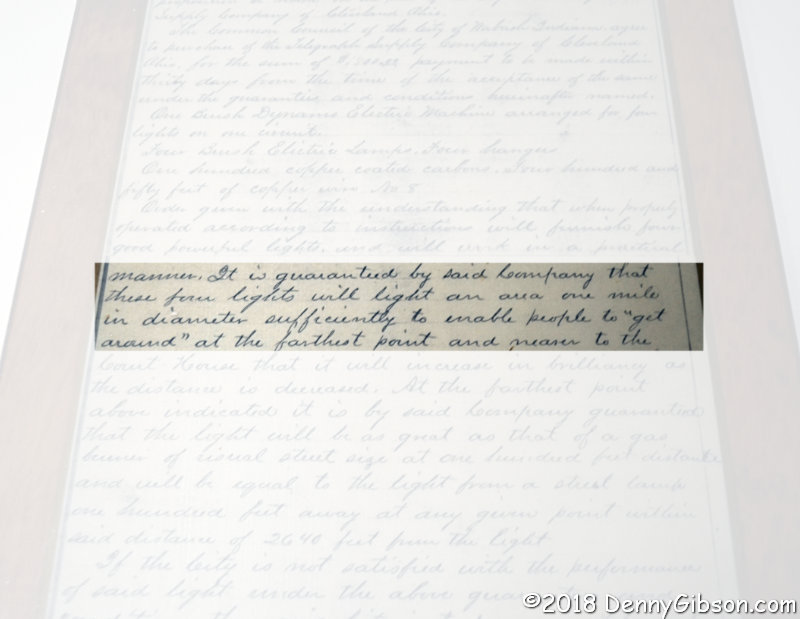 Supply Company of Cleveland Ohio.
The Common Council of the City of Wabash Indiana, agree
to purchase of the Telegraph Supply Company of Cleveland
Ohio, for the sum of payment to be made within
thirty days from the time of the acceptance of the same
under the guaranties and conditions hereinafter named.
One Brush Dynamo Electric Machine arranged for four
lights on one circuit.
Four Brush Electric Lamps. Four hangers
One hundred copper coated carbons. Four hundred and
fifty feet of copper wire No 8
Order given with the understanding that when properly
operated according to instructions will furnish four
good powerful lights, and will in a practical
manner. It is guaranteed by said Company that
these four lights will light an area one mile
in diameter sufficiently to enable people to "get
around" at the farthest point and nearer to the
Court House that it will increase in brilliancy as
the distance is decreased. At the farthest point
above indicated it is by said Company guaranteed
that the light will be as great as that of a gas
burner of usual street size at one hundred feet distance
and will be equal to the light from a street lamp
one hundred feet away at any given point within
said distance of 2640 feet from the light
If the City is not satisfied with the performance
of said light under the above
©2018 DennyGibson.com